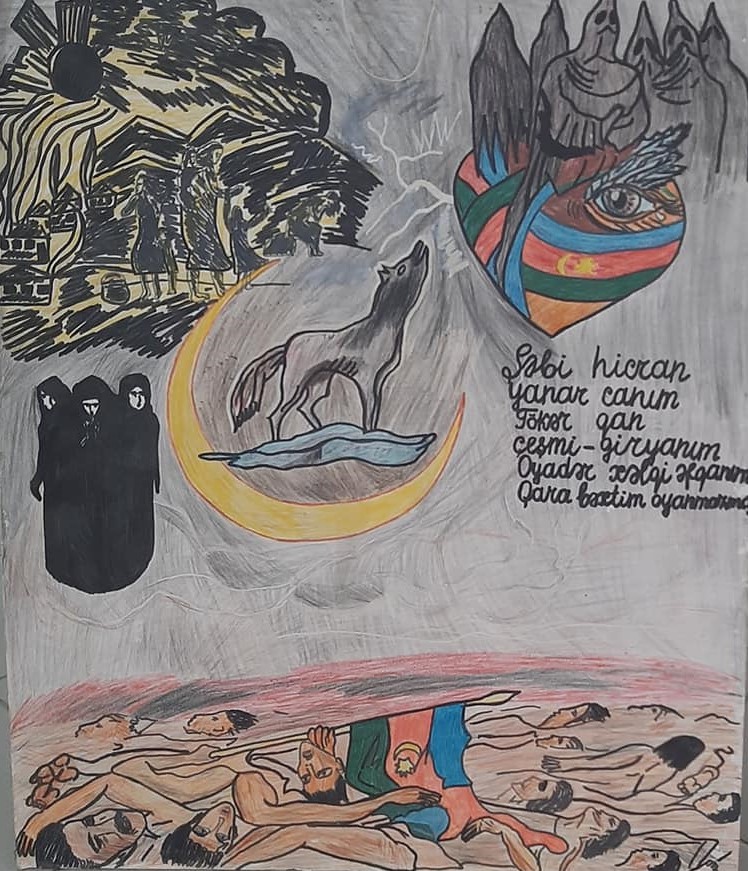 Şəbi hicran
yanar canım
Tökər qan
çeşmi-giryanım
Oyadər xəlqi əfqanım
Qara bəxtim oyanmazmı